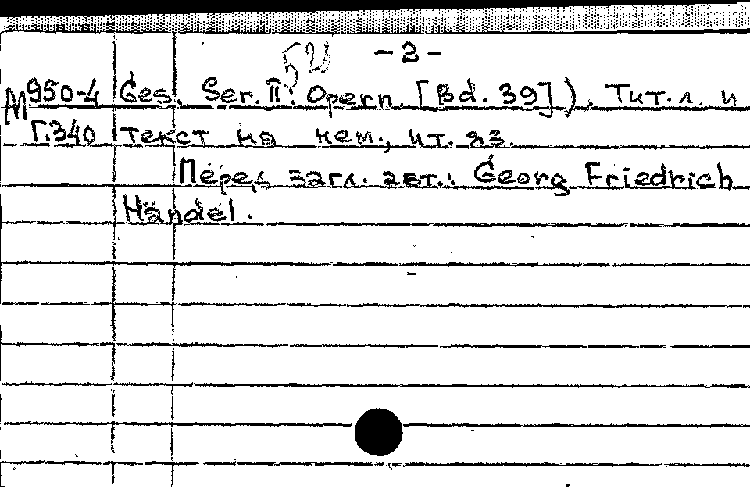 - 2 -
М 950-4 Ges. Ser. II. Opern. [Bd. 39]). Тит. л. и
Г.340 текст на нем., ит. яз.
Перед загл. авт.: Georg Friedrich
Händel.